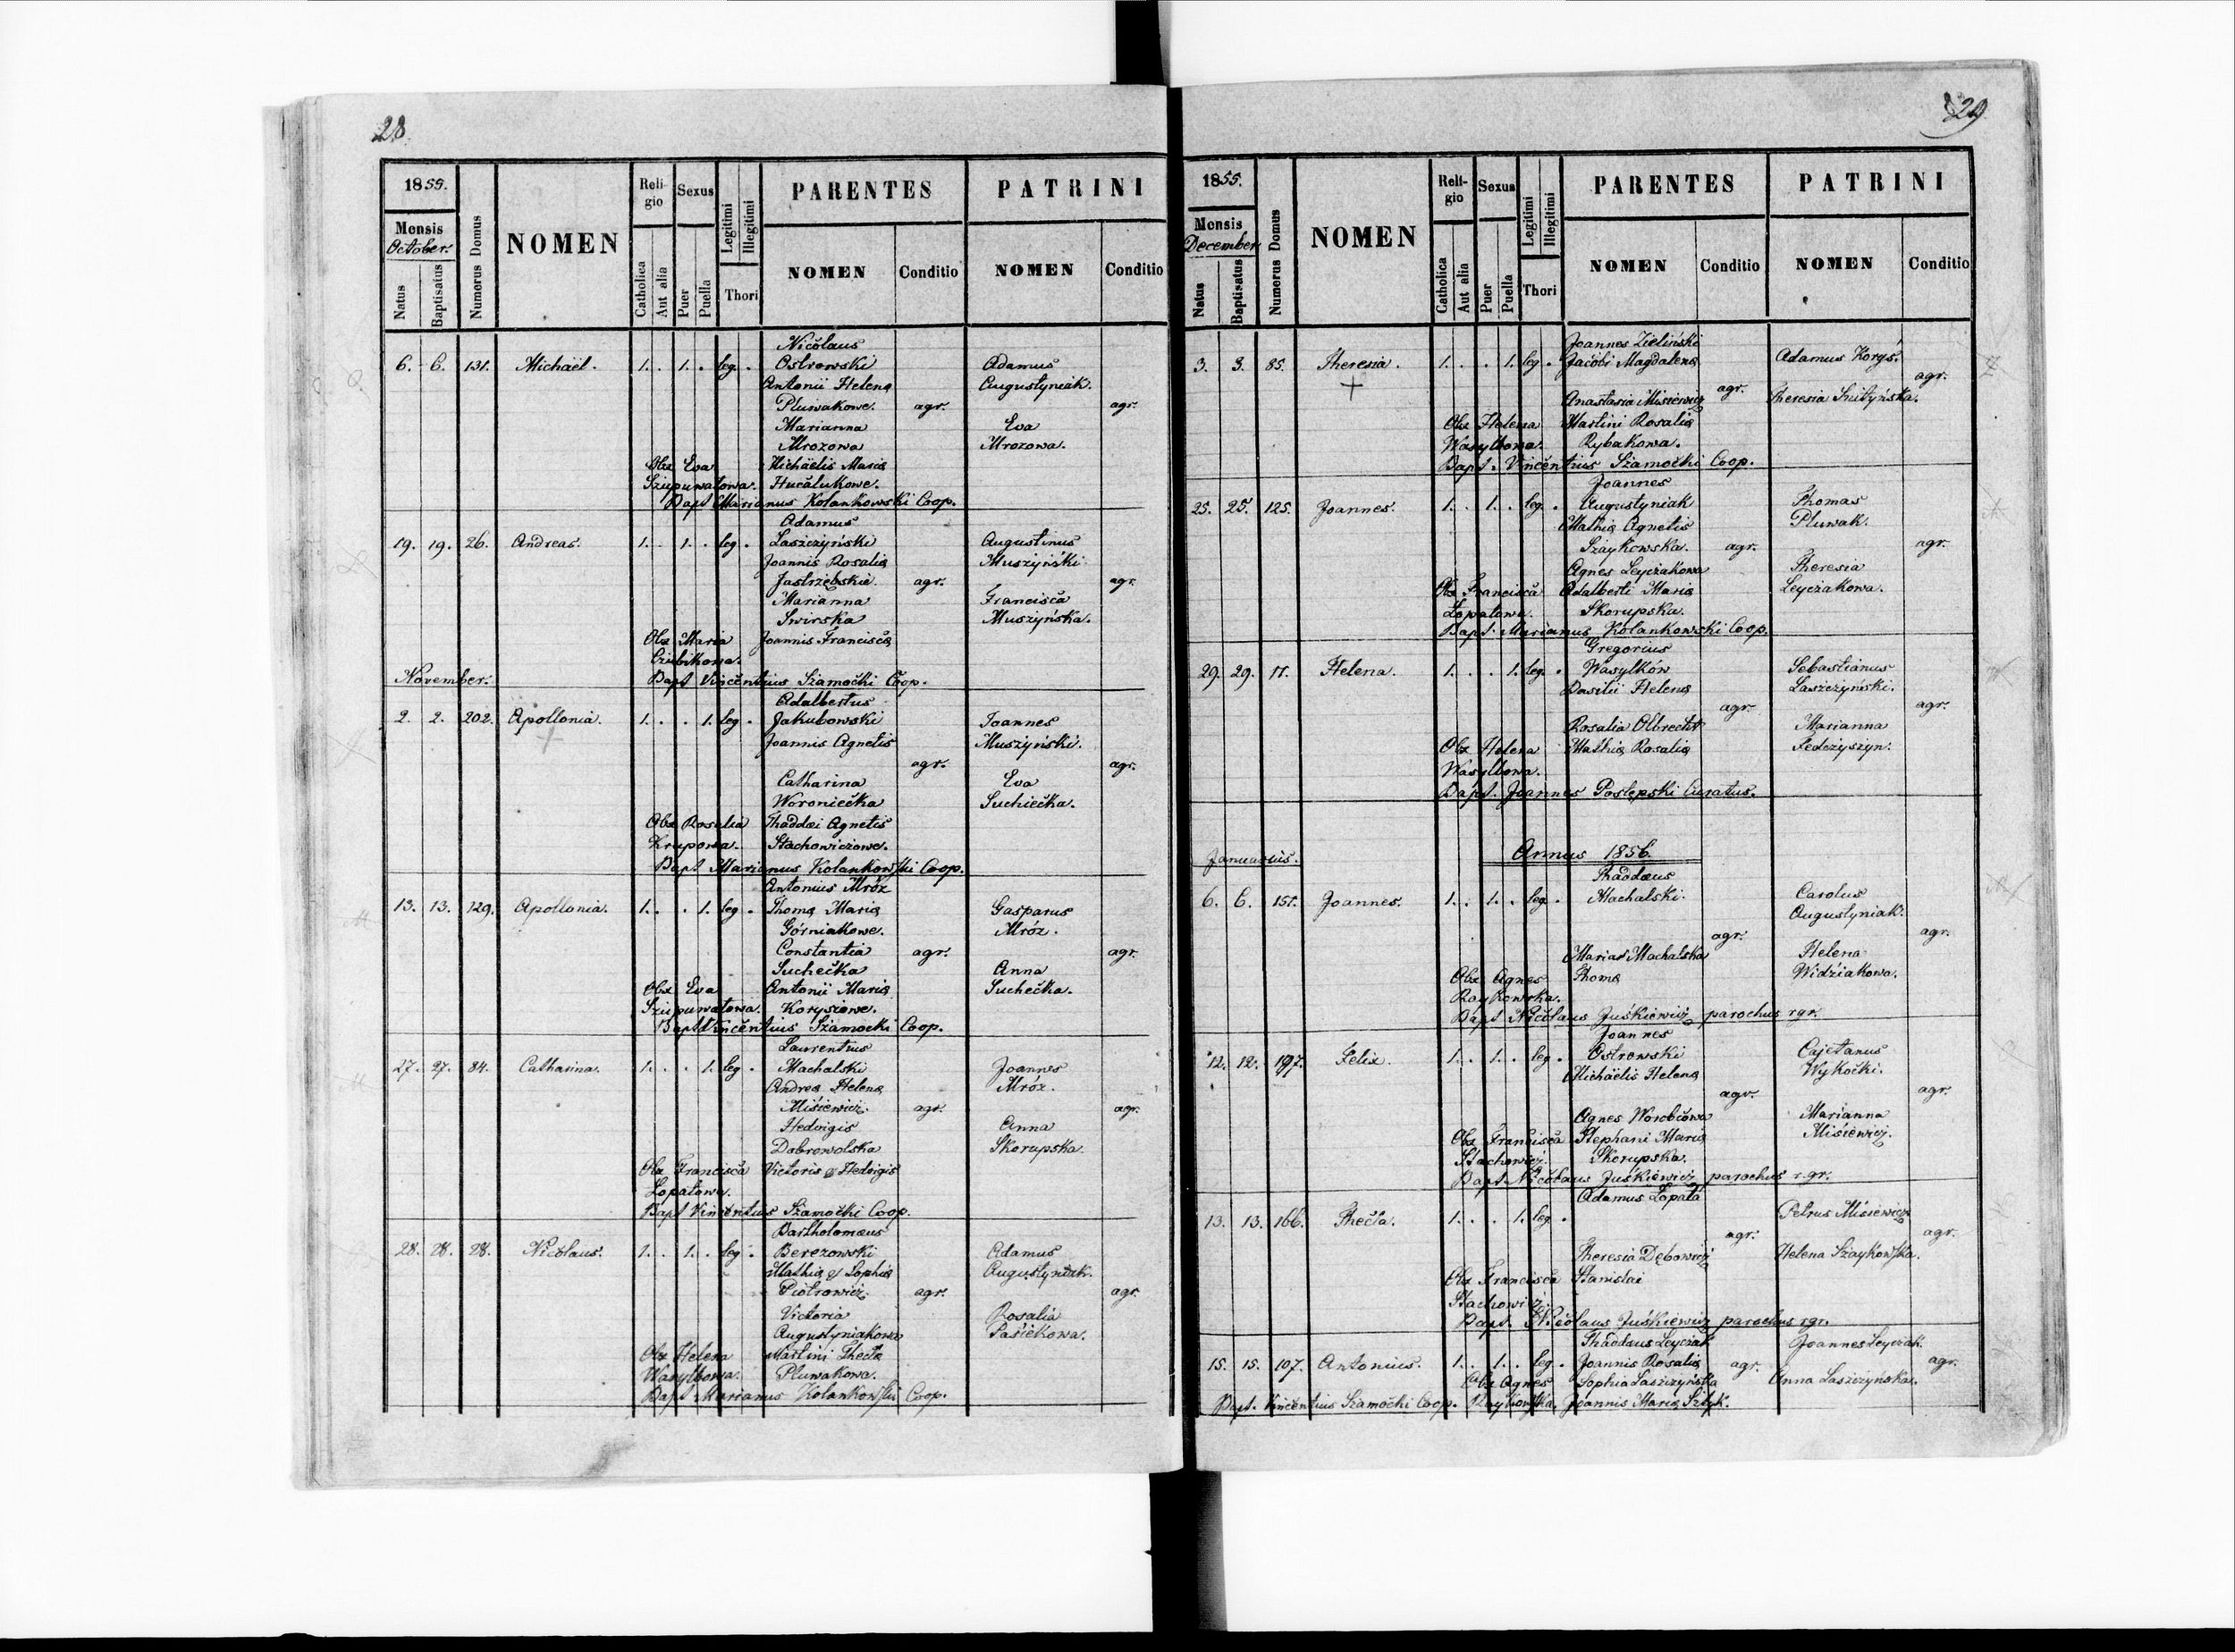 28.
1855.
Mensis
October.
Natus
Baptisatus
Numerus Domus
NOMEN
Religio
Catholica
Aut alia
Sexus
Puer
Puella
Legitimi
Illegitimi
Thori
PARENTES
NOMEN
Conditio
PATRINI
NOMEN
Conditio
Nicolaus
6. 6. 131. Michaël. 1. . 1. . leg. . Ostrowski Adamus
Antonii Helena Augustyniak.
Pluwakowe. agr. agr.
Marianna Eva
Mrozowa Mrozowa.
Obx Eva Michaëlis Maria
Szupuwatowa. Hucalukowe.
Bapt Marianus Kolankowski Coop.
Adamus
19. 19. 26. Andreas. 1. . 1. . leg . Laszczyński Augustinus
Joannis Rosalia Muszyński
Jastrzębskie. agr. agr.
Marianna Francisca
Swirska Muszyńska.
Obx Maria Joannis Francisca
Cziubikowa.
November. Bapt Vincentius Szamocki Coop.
Adalbertus
2. 2. 202. Apollonia. 1. . . 1. leg . Jakubowski Joannes
Joannis Agnetis Muszyński.
agr. agr.
Catharina Eva
Woroniecka Suchiecka.
Obx Rosalia Thaddæi Agnetis
Krupowa. Stachowiczowe.
Bapt Marianus Kolankowski Coop.
Antonius Mróz
13. 13. 129. Apollonia. 1. . . 1. leg . Thoma Maria Gasparus
Górniakowe. Mróz.
Constantia agr. agr.
Suchecka Anna
Obx Eva Antonii Maria Suchecka.
Szupuwatowa. Korysiowe.
Bapt Vincentius Szamocki Coop.
Laurentius
27. 27. 84. Catharina. 1. . . 1. leg . Machalski Joannes
Andrea Helena Mróz.
Misiewicz. agr. agr.
Hedvigis Anna
Dobrowolska Skorupska
Obx Francisca Victoris & Hedvigis
Lopatowa.
Bapt Vincentius Szamocki Coop.
Bartholomæus
28. 28. 28. Nicolaus. 1. . 1. . leg . Berezowski Adamus
Mathia & Sophia Augustyniak.
Piotrowicz. agr. agr.
Victoria Rosalia
Augustyniakowa Pasiekowa.
Obx Helena Martini Thecla
Wasylbowa. Pluwakowa.
Bapt Marianus Kolankowski Coop.
29
1855.
Mensis
December
Natus
Baptisatus
Numerus Domus
NOMEN
Religio
Catholica
Aut alia
Sexus
Puer
Puella
Legitimi
Illegitimi
Thori
PARENTES
NOMEN
Conditio
PATRINI
NOMEN
Conditio
Joannes Zieliński
3. 3. 85. Theresia. 1. . . 1. leg . Jacobi Magdalena Adamus Korys.
agr. agr.
Anastasia Misiewicz Theresia
Obx Helena Martini Rosalia
Wasylbowa. Rybakowa.
Bapt. Vincentius Szamocki Coop.
Joannes
25. 25. 125. Joannes. 1. . 1. . leg. . Augustyniak Thomas
Mathia Agnetis Pluwak.
Szaykowska. agr. agr.
Agnes Leyczakowa Theresia
Obx Francisca Adalberti Maria Leyczakowa.
Lopatowa. Skorupska.
Bapt. Marianus Kolankowski Coop.
Gregorius
29. 29. 11. Helena. 1. . . 1. leg. . Wasylków Sebastianus
Basilii Helena Laszczyński.
agr. agr.
Rosalia Olbrecht Marianna
Obx Helena Mathia Rosalia Fedczyszyn.
Wasylbowa.
Bapt. Joannes Poslepski Curatus.
Januarius. Annus 1856.
Thaddæus
6. 6. 151. Joannes. 1. . 1. . leg . Machalski. Carolus
Augustyniak.
agr. agr.
Maria Machalska Helena
Obx Agnes Thoma Widziakowa.
Raykowska.
Bapt. Nicolaus Juśkiewicz parochus r.gr.
Joannes
12. 12. 197. Felix. 1. . 1. . leg . Ostrowski Cajetanus
Michaëlis Helena Wykocki.
agr. agr.
Agnes Worobcowa Marianna
Obx Francisca Stephani Maria Misiewicz.
Stachowicz. Skorupska.
Bapt. Nicolaus Juśkiewicz parochus r.gr.
Adamus Lopata
13. 13. 166. Thecla. 1. . . 1. leg . Petrus Misiewicz
agr. agr.
Theresia Dębowicz Helena Szaykowska.
Obx Francisca Stanislai
Stachowicz
Bapt. Nicolaus Juśkiewicz parochus r.gr.
Thaddæus Leyczak Joannes Leyczak.
15. 15. 107. Antonius. 1. . 1. . leg . Joannis Rosalia agr. agr.
Obx Agnes Sophia Laszczyńska Anna Laszczyńska.
Bapt. Vincentius Szamocki Coop. Raykowska. Joannis Maria Sztyk.